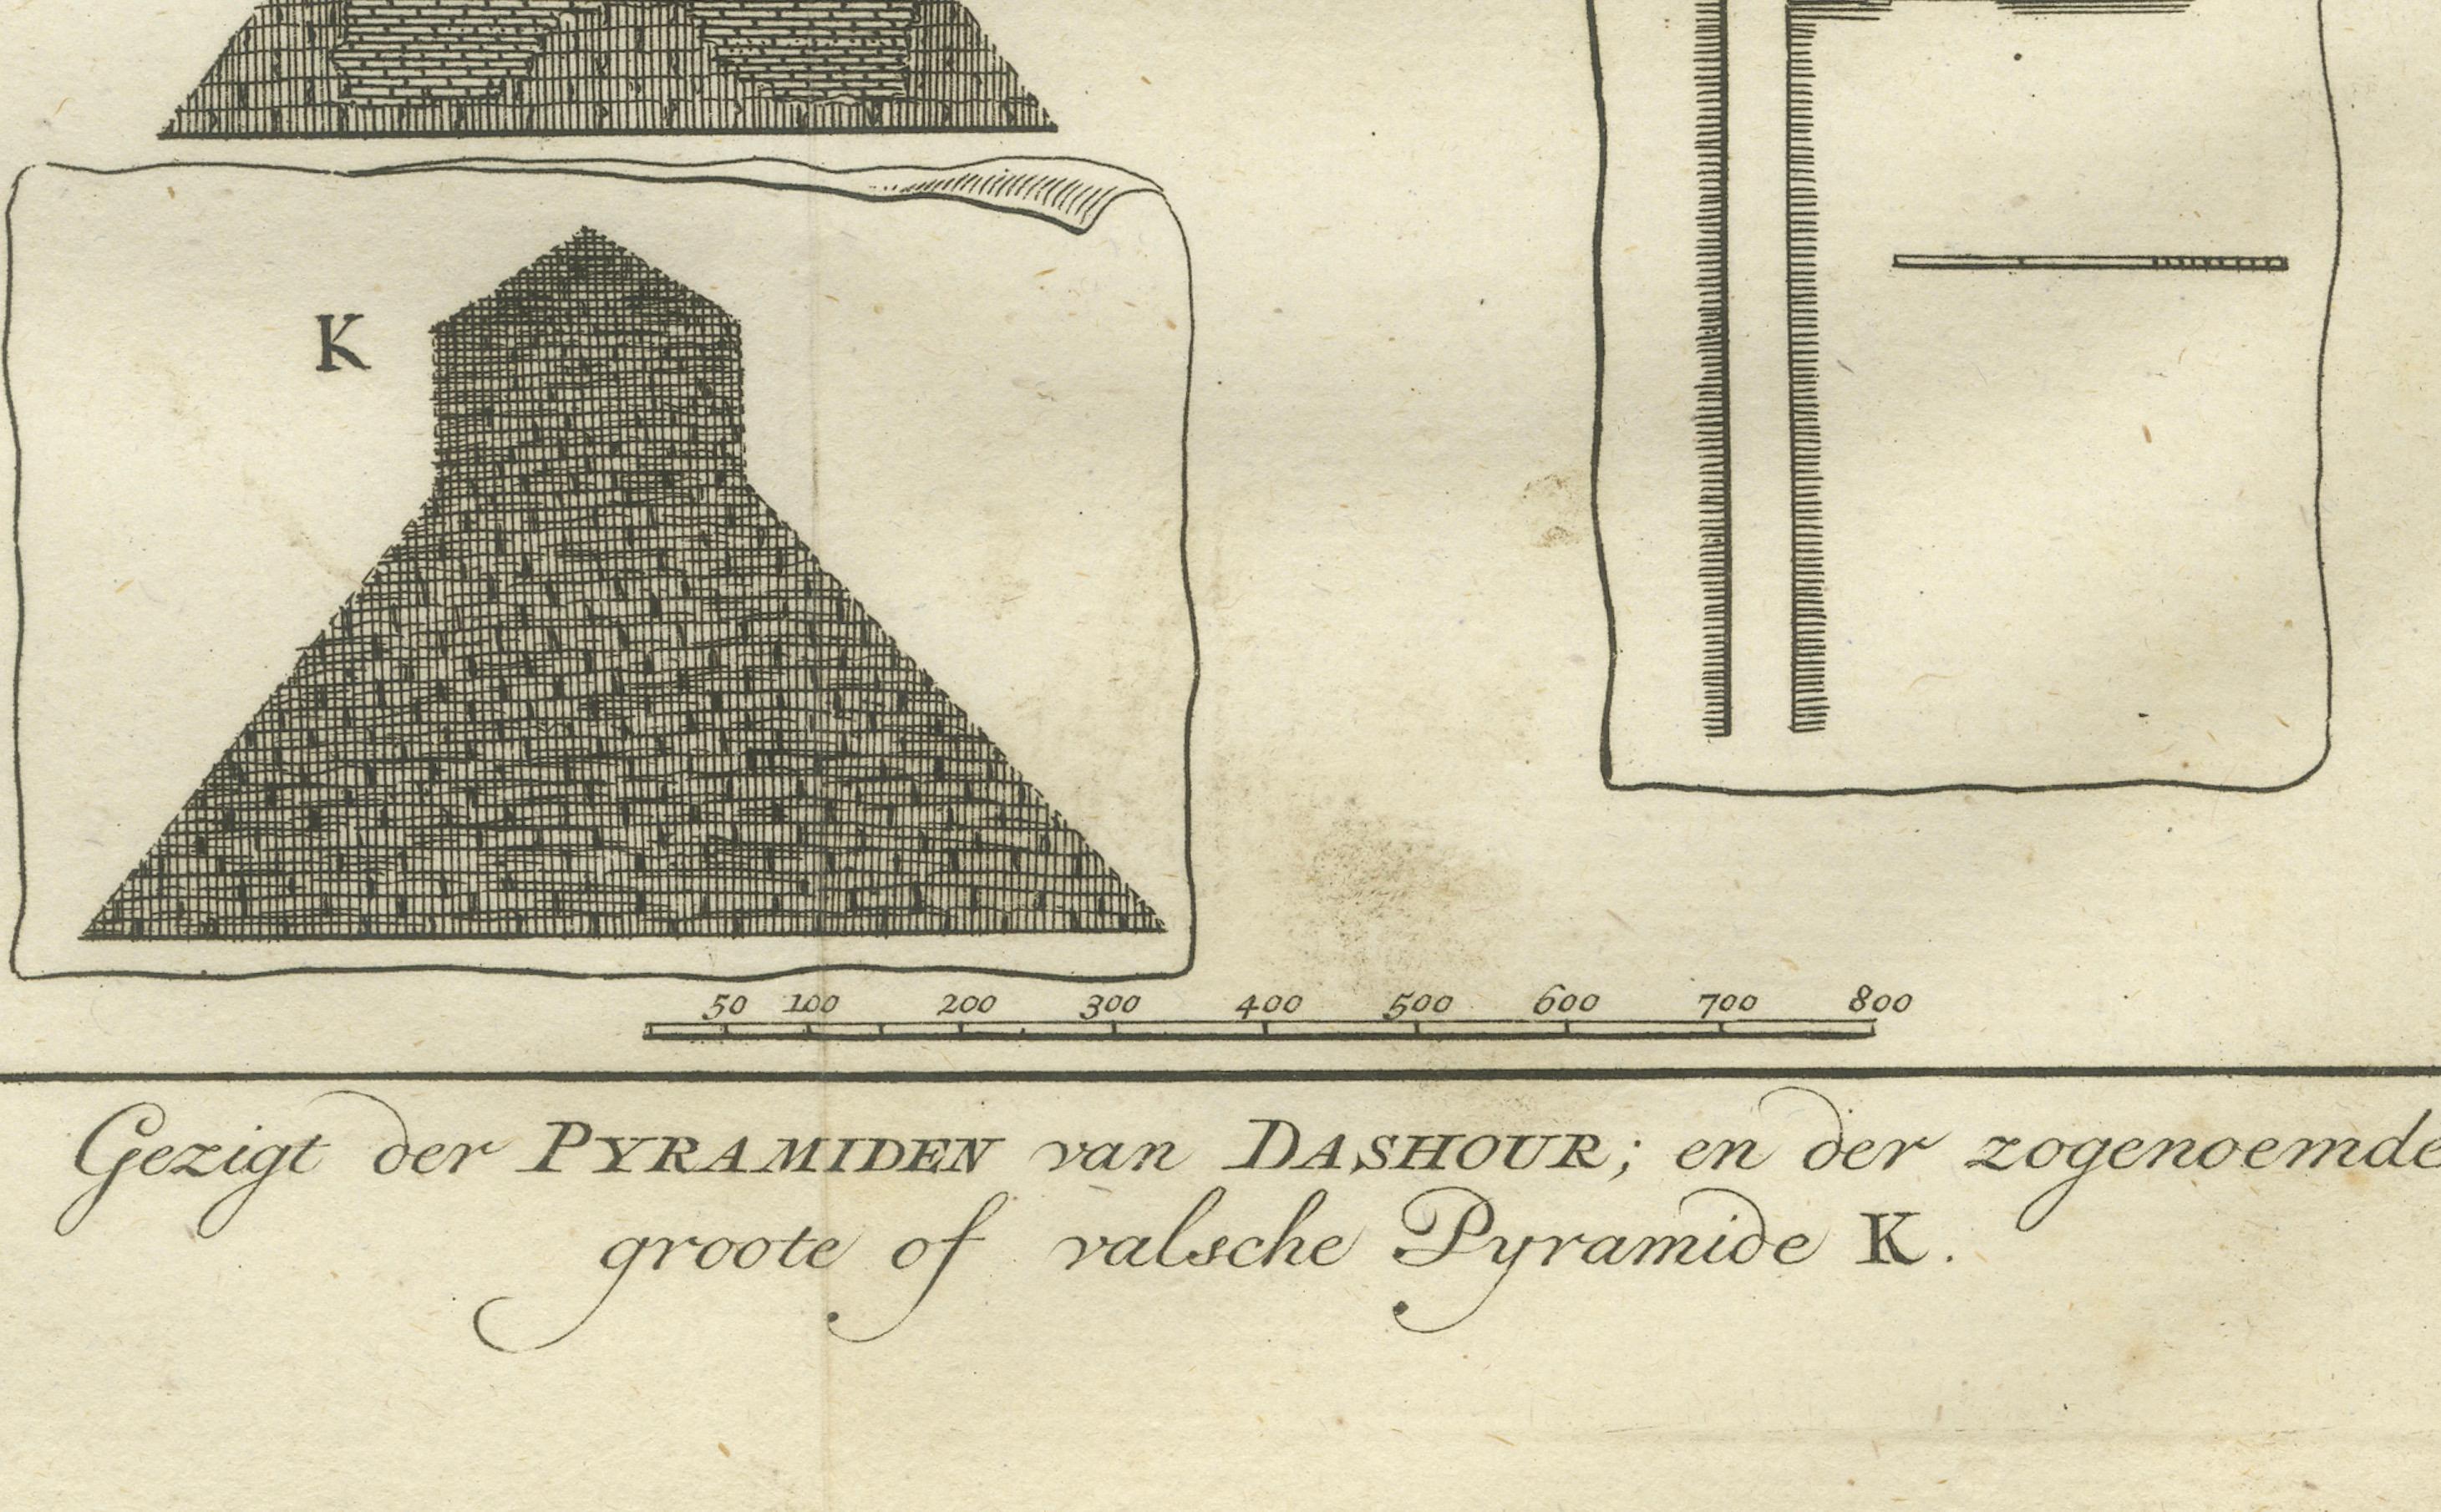 K
50 100 200 300 400 500 600 700 800
Gezigt der PYRAMIDEN van DASHOUR; en der zogenoemde
groote of valsche Pyramide K.